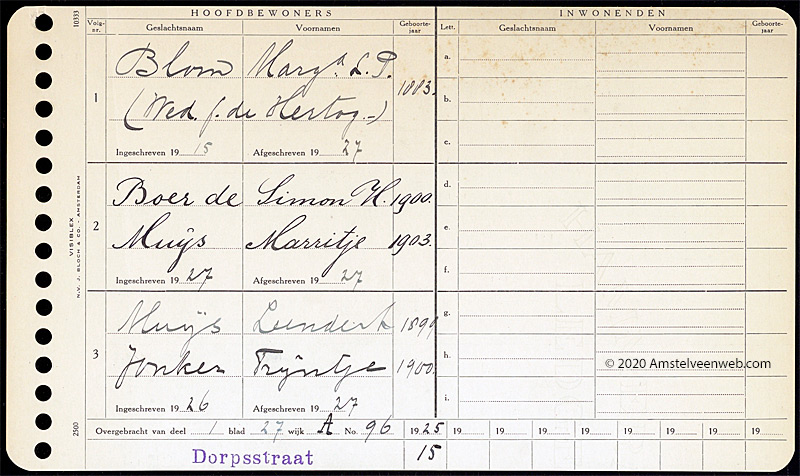 HOOFDBEWONERS INWONENDEN
Volg-nr. Geslachtsnaam Voornamen Geboorte-jaar Lett. Geslachtsnaam Voornamen Geboorte-jaar
10333
1 Blom Marg.ª L.P. 1883.
(Wed. J. de Hertog.-)
Ingeschreven 19 15 Afgeschreven 19 27
2 Boer de Simon H. 1900.
Muijs Marritje 1903.
Ingeschreven 19 27 Afgeschreven 19 27
3 Muijs Leendert 1899
Jonker Trijntje 1900.
Ingeschreven 19 26 Afgeschreven 19 27
a.
b.
c.
d.
e.
f.
g.
h.
i.
© 2020 Amstelveenweb.com
Overgebracht van deel 1 blad 27 wijk A No. 96 1925 19 19 19 19 19 19 19 19 19
Dorpsstraat 15
VISIBLEX
N.V. J. BLOCH & CO. - AMSTERDAM
2500